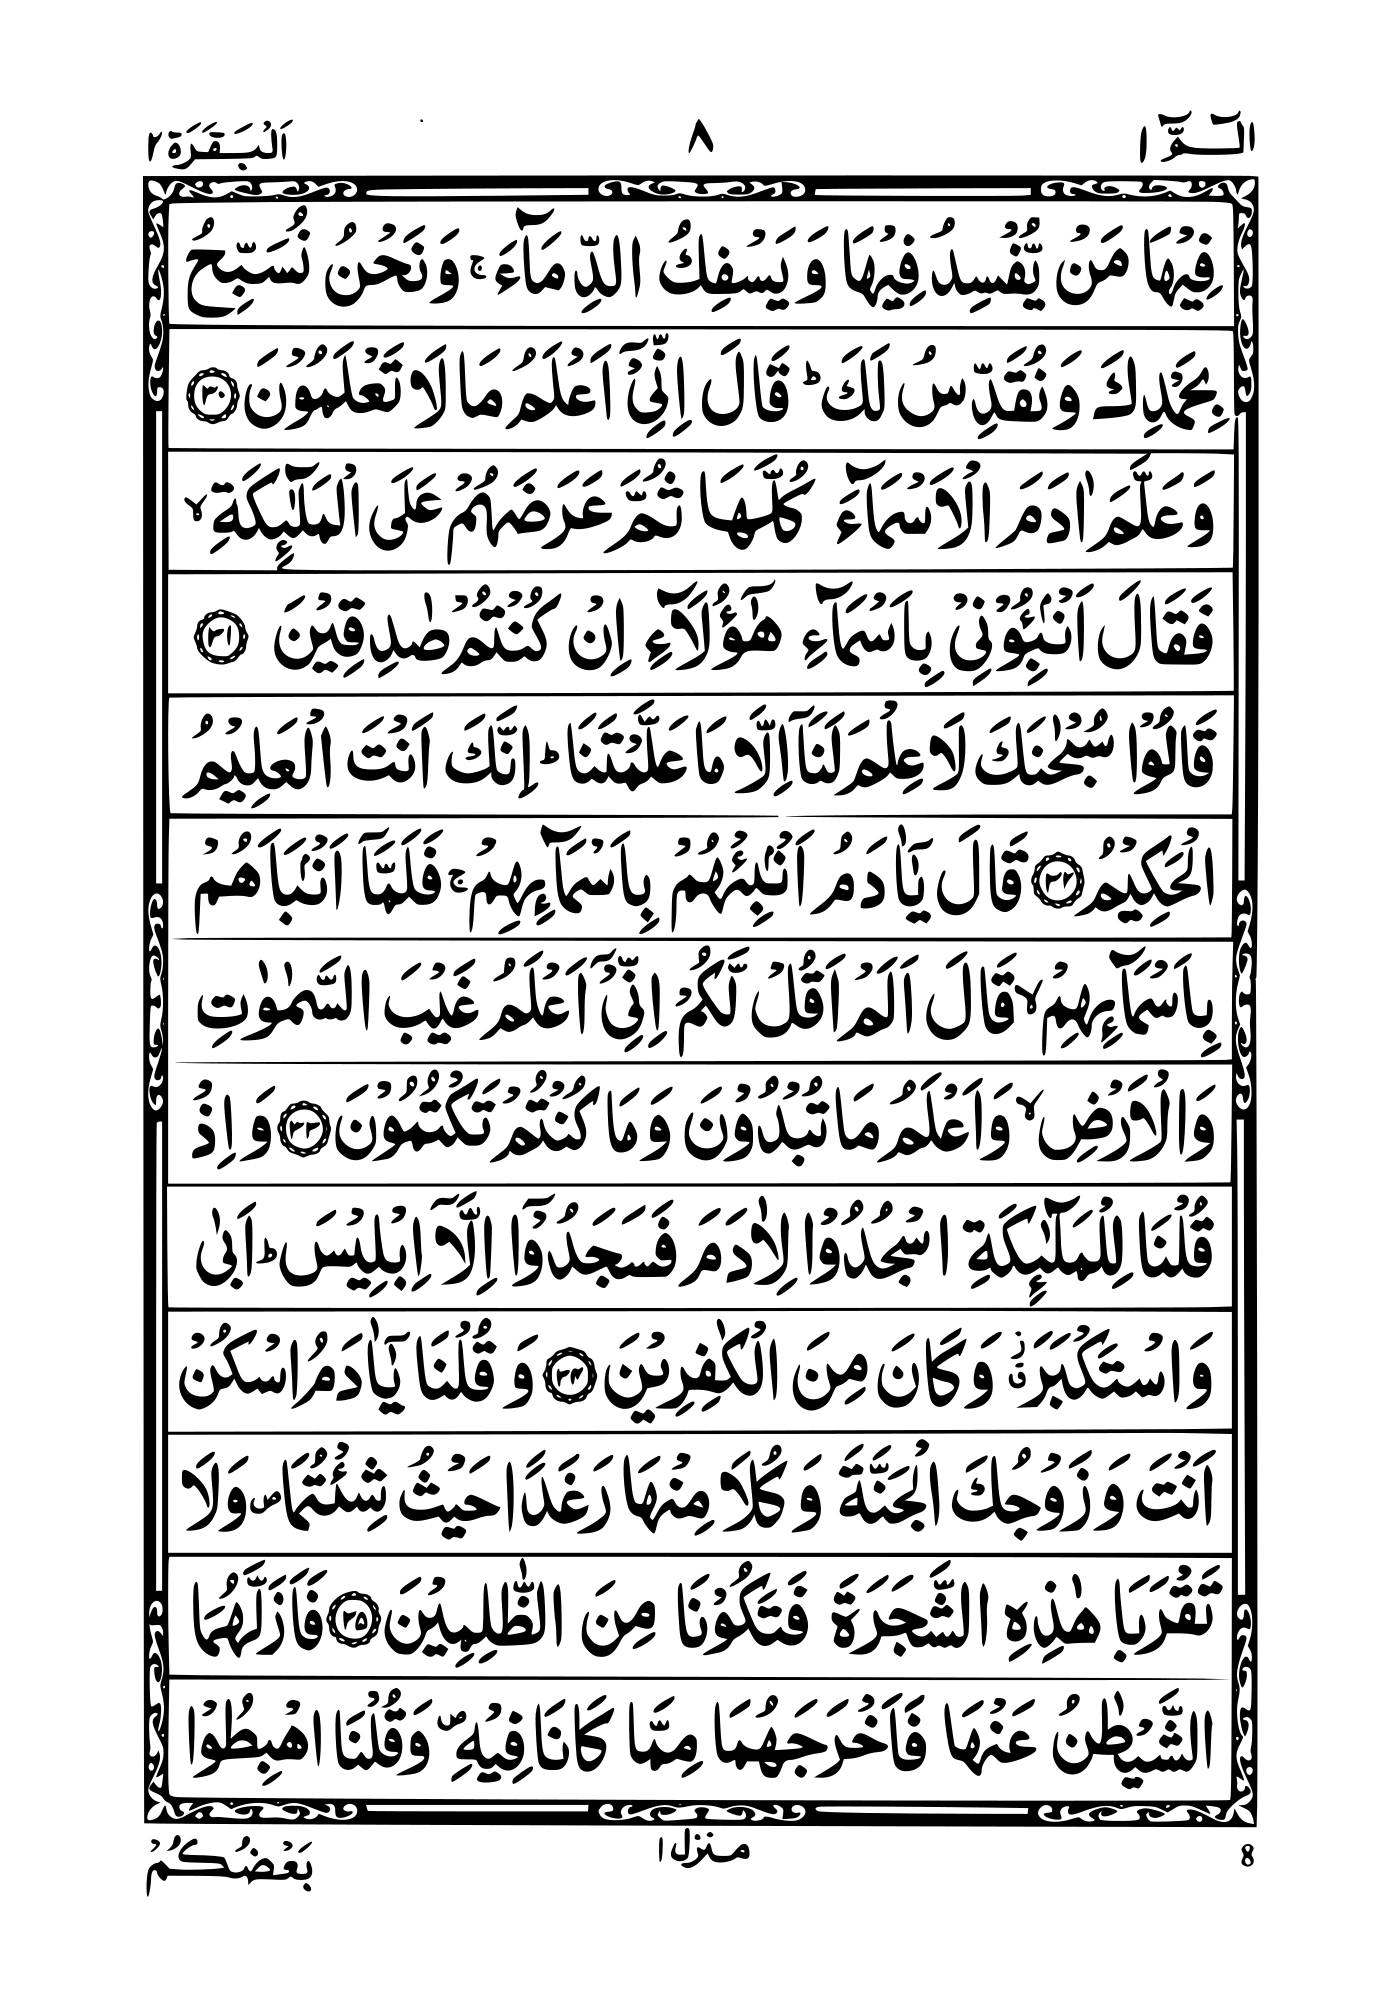 الٓمّٓ ١ ٨ اَلْبَقَرَة ٢
فِيْهَا مَنْ يُّفْسِدُ فِيْهَا وَ يَسْفِكُ الدِّمَآءَ ۚ وَنَحْنُ نُسَبِّحُ
بِحَمْدِكَ وَ نُقَدِّسُ لَكَ ؕ قَالَ اِنِّيْٓ اَعْلَمُ مَا لَا تَعْلَمُوْنَ ﴿٣٠﴾
وَ عَلَّمَ اٰدَمَ الْاَسْمَآءَ كُلَّهَا ثُمَّ عَرَضَهُمْ عَلَى الْمَلٰٓئِكَةِ ۙ
فَقَالَ اَنْۢبِـُٔوْنِيْ بِاَسْمَآءِ هٰٓؤُلَآءِ اِنْ كُنْتُمْ صٰدِقِيْنَ ﴿٣١﴾
قَالُوْا سُبْحٰنَكَ لَا عِلْمَ لَنَاۤ اِلَّا مَا عَلَّمْتَنَا ؕ اِنَّكَ اَنْتَ الْعَلِيْمُ
الْحَكِيْمُ ﴿٣٢﴾ قَالَ يٰٓاٰدَمُ اَنْۢبِئْهُمْ بِاَسْمَآئِهِمْ ۚ فَلَمَّاۤ اَنْۢبَاَهُمْ
بِاَسْمَآئِهِمْ ۙ قَالَ اَلَمْ اَقُلْ لَّكُمْ اِنِّيْٓ اَعْلَمُ غَيْبَ السَّمٰوٰتِ
وَالْاَرْضِ ۙ وَاَعْلَمُ مَا تُبْدُوْنَ وَ مَا كُنْتُمْ تَكْتُمُوْنَ ﴿٣٣﴾ وَ اِذْ
قُلْنَا لِلْمَلٰٓئِكَةِ اسْجُدُوْا لِاٰدَمَ فَسَجَدُوْٓا اِلَّاۤ اِبْلِيْسَ ؕ اَبٰى
وَ اسْتَكْبَرَ ۫ۗ وَ كَانَ مِنَ الْكٰفِرِيْنَ ﴿٣٤﴾ وَ قُلْنَا يٰٓاٰدَمُ اسْكُنْ
اَنْتَ وَ زَوْجُكَ الْجَنَّةَ وَ كُلَا مِنْهَا رَغَدًا حَيْثُ شِئْتُمَا ۪ وَلَا
تَقْرَبَا هٰذِهِ الشَّجَرَةَ فَتَكُوْنَا مِنَ الظّٰلِمِيْنَ ﴿٣٥﴾ فَاَزَلَّهُمَا
الشَّيْطٰنُ عَنْهَا فَاَخْرَجَهُمَا مِمَّا كَانَا فِيْهِ ۪ وَقُلْنَا اهْبِطُوْا
8 منزل ١ بَعْضُكُمْ